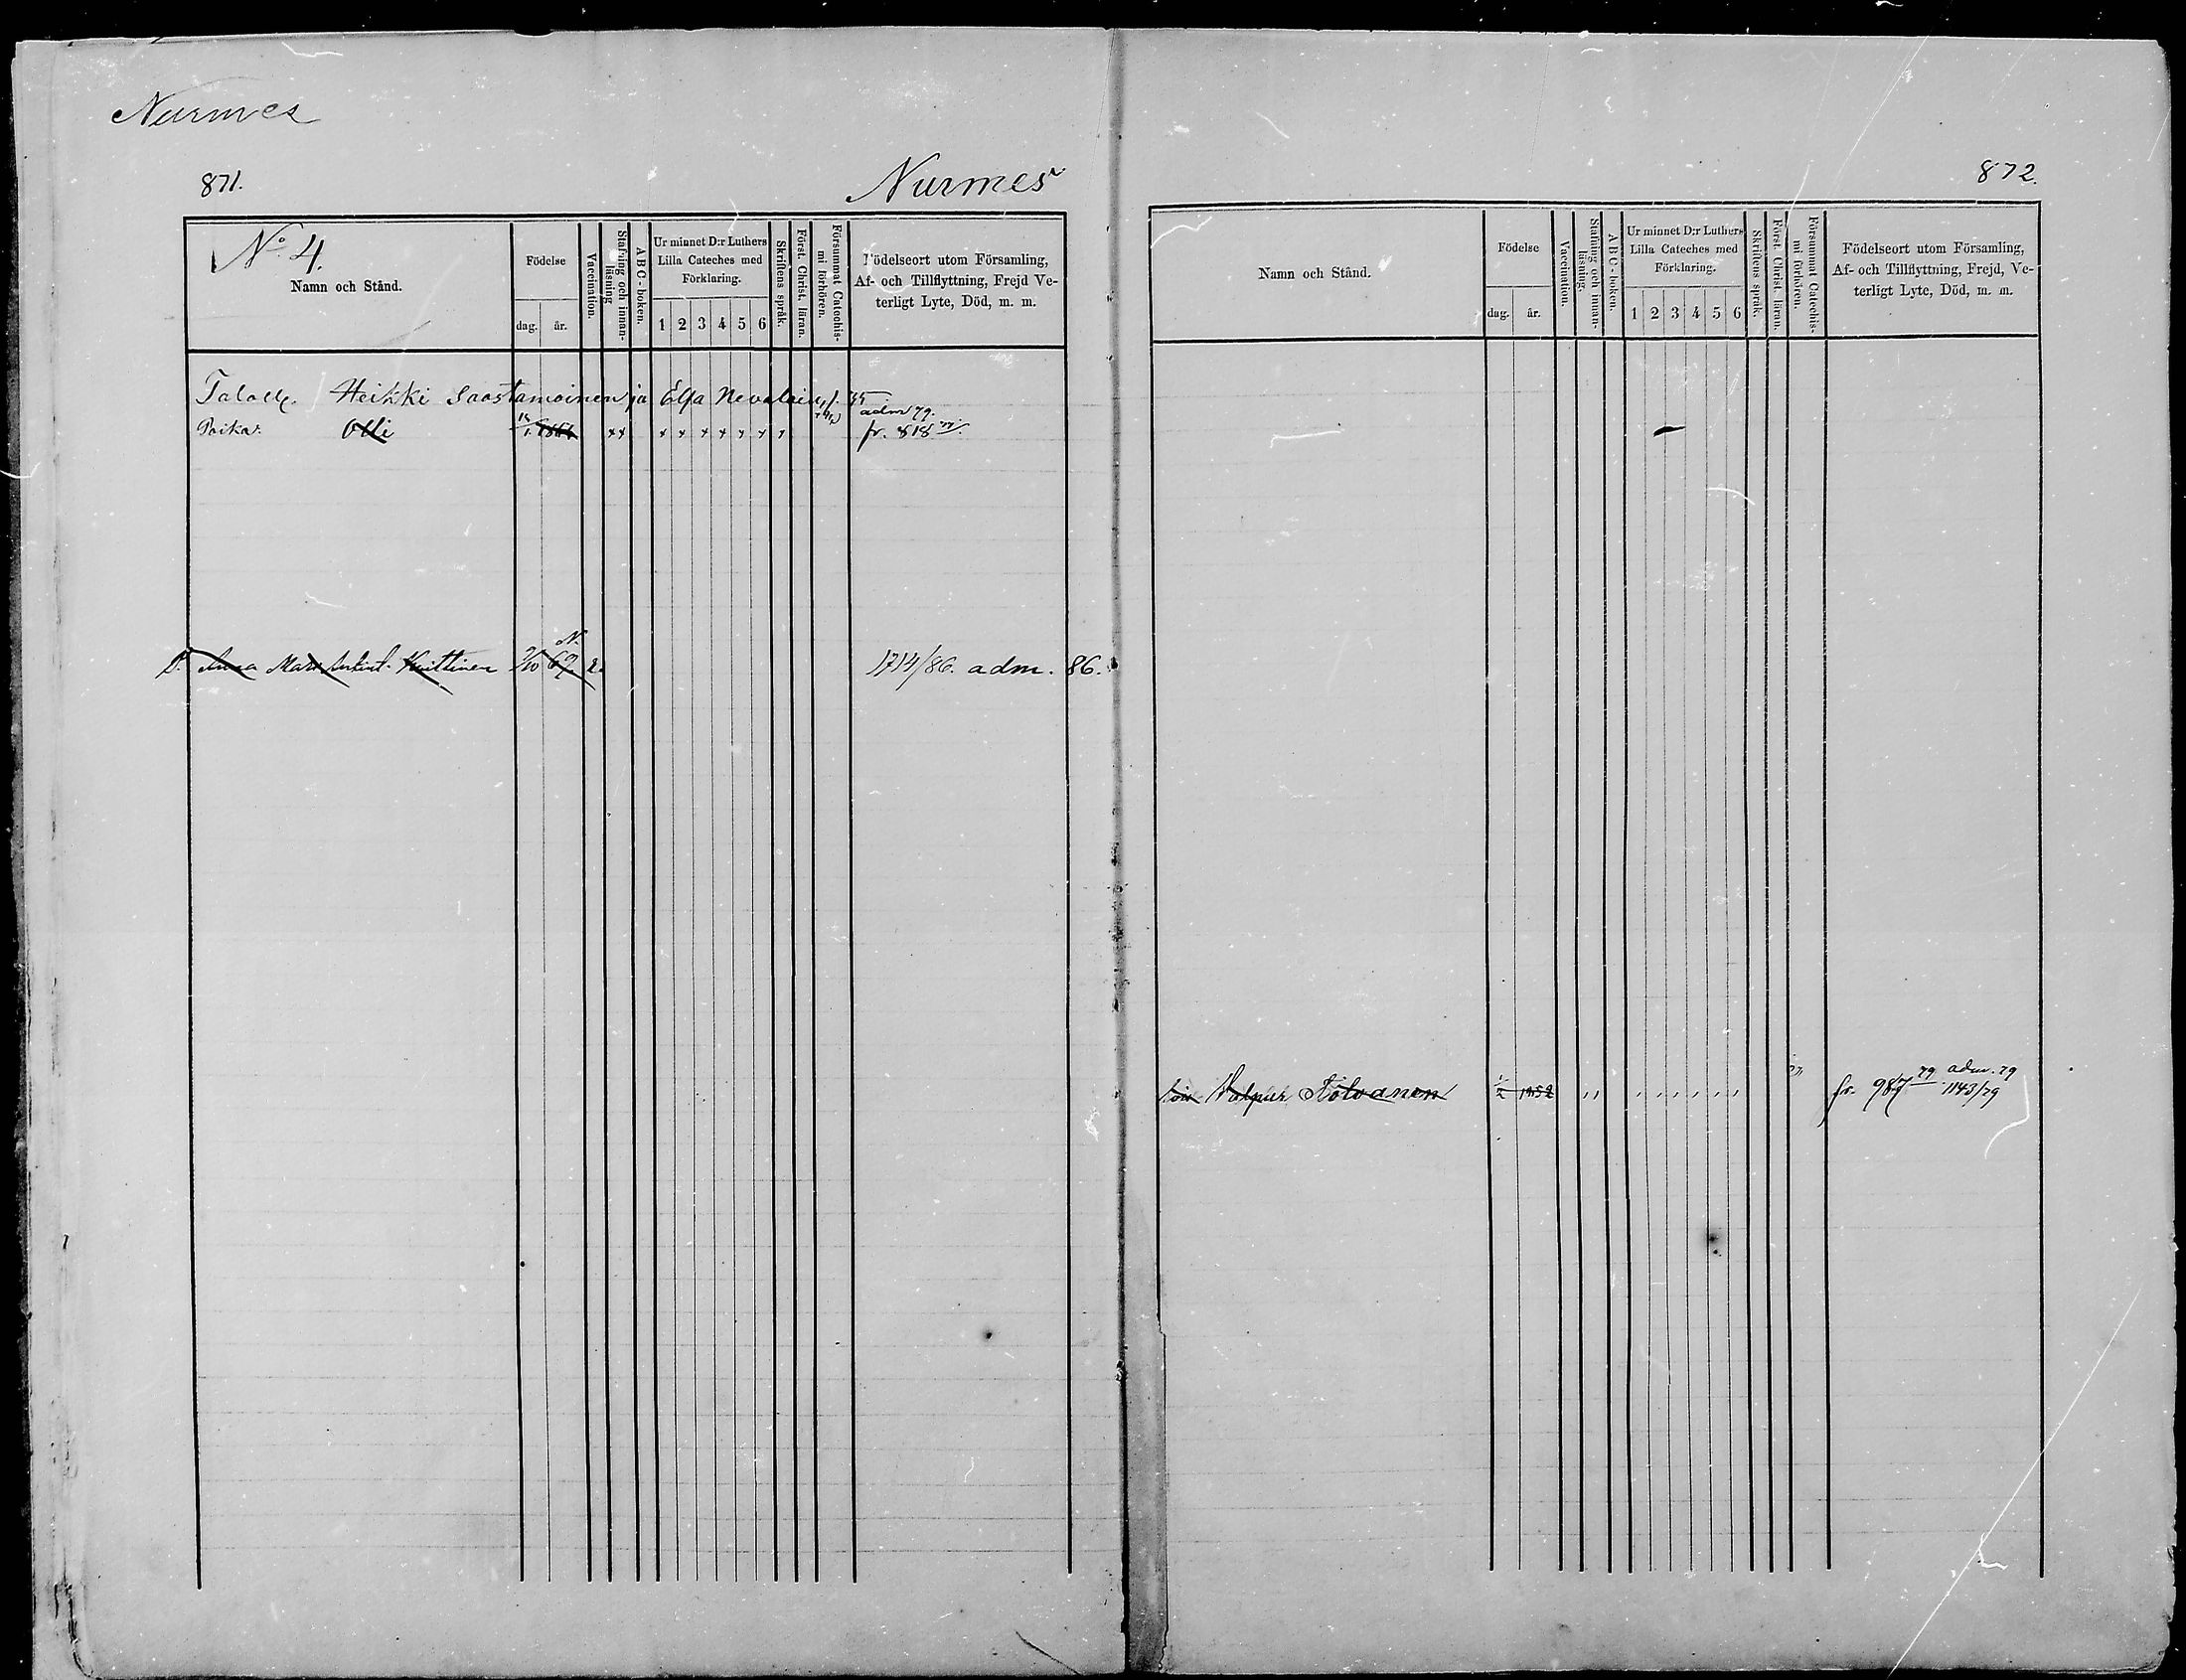 Nurmes
871.
Nurmes
No 4.
Namn och Stånd.
Födelse
dag. år.
Vaccination.
Stafning och innanläsning
ABC-boken.
Ur minnet D:r Luthers Lilla Cateches med Förklaring.
1 2 3 4 5 6
Skriftens språk.
Först. Christ. läran.
Försummat Catechismi förhören.
Födelseort utom Församling, Af- och Tillflyttning, Frejd Veterligt Lyte, Död, m. m.
Heikki Saastamoinen ja Elsa Nevalain
adm 79.
Poika: Olli fr. 818
N.
D. Anna Mari Kuittinen 2/10 69 2. 1714/86. adm. 86.
872.
Namn och Stånd.
Födelse
dag. år.
Vaccination.
Stafning och innanläsning.
ABC-boken.
Ur minnet D:r Luthers Lilla Cateches med Förklaring.
1 2 3 4 5 6
Skriftens språk.
Först. Christ. läran.
Försummat Catechismi förhören.
Födelseort utom Församling, Af- och Tillflyttning, Frejd, Veterligt Lyte, Död, m. m.
1852 fr. 987 79 adm. 79
1143/79